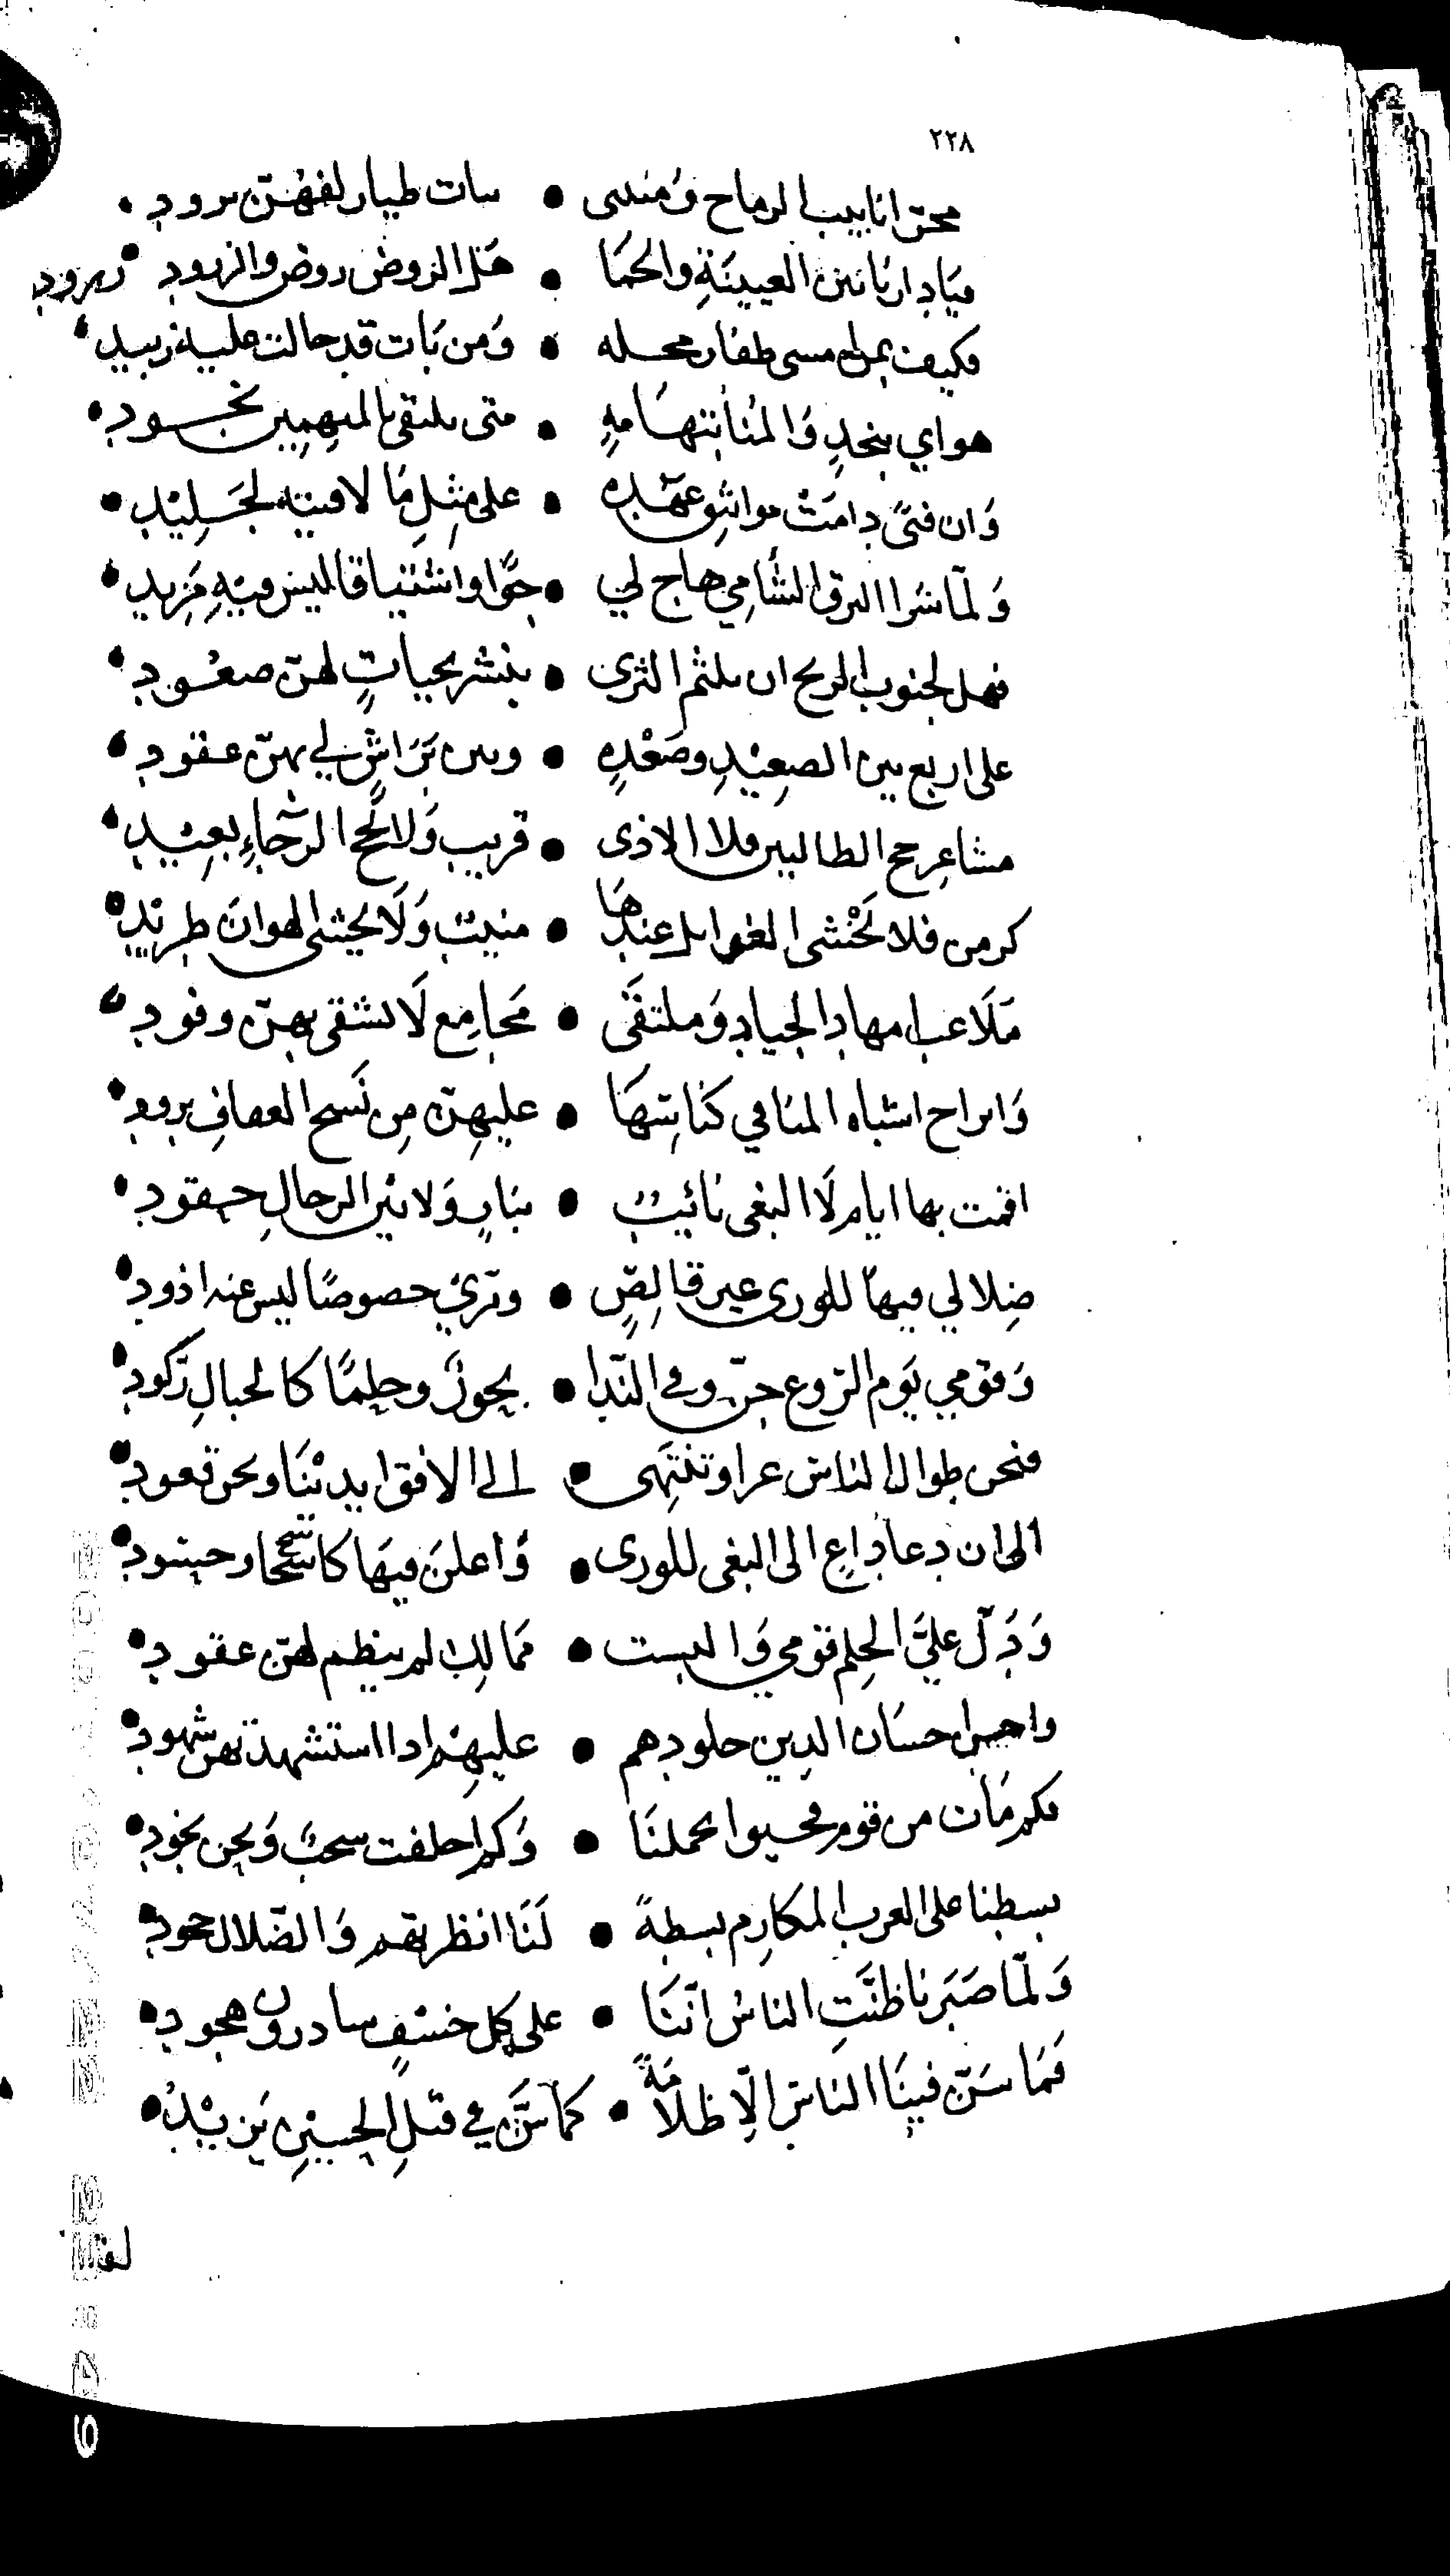 ٢٢٨
انابيب الرماح ومنسى • لفهن برود •
فيا دارنا بين العيينة والحما • هل الروض روض والزرود زرود
فكيف بمن امسى ظفار محله • ومن بات قد حالت عليه زبيد •
هواي بنجد والمنا بتهامه • متى يلتقي بالمتهمين نجود •
وان فتى دامت مواثيق عهده • على مثل ما لاقيته لجليد •
ولما سرا البرق الشامي هاج لي • جوا واشتياقا ليس فيه مزيد •
فهل لجنوب الريح ان يلثم الثرى • بنشر تحيات لهن صعود •
على اربع بين الصعيد وصعده • وبين براش لي بهن عقود •
مشاعر حج الطالبين فلا الاذى • قريب ولا نجح الرجاء بعيد •
كرمن فلا تخشى الغوايل عندها • منيب ولا يخشى الهوان طريد •
ملاعب امهاد الجياد وملتقى • مجامع لا تشقى بهن وفود •
وابراح اشباه المنا في كنا • عليهن من نسج العفاف برود •
اقمت بها ايام لا البغي نائب • بناب ولا بين الرجال حقود •
ضلالي فيها للورى غير قالص • وتربي خصوصا ليس عنه اذود •
وقومي يوم الروع جن وفي الندا • بحور وحلما كالجبال ركود •
فنحن طوال الناس عزا وتنتهي • الى الافق ايدينا ونحن قعود •
الى ان دعا داع الى البغي للورى • واعلن فيها كاشح وحسود •
ودل علي الحلم قومي واليست • ممالك لم ينظم لهن عقود •
حسان الدين جلودهم • عليهم اذا استشهدتهن شهود •
فكم مات من قوم فحيوا بحملنا • وكم اخلفت سحب ونحن نجود •
بسطنا على العرب المكارم بسطة • لنا انظر بهم والضلال
ولما صبرنا ظنت الناس اننا • على كل خسف سادرون هجود •
فما سن فينا الناس الا ظلامة • كما سن في قتل الحسين يزيد •